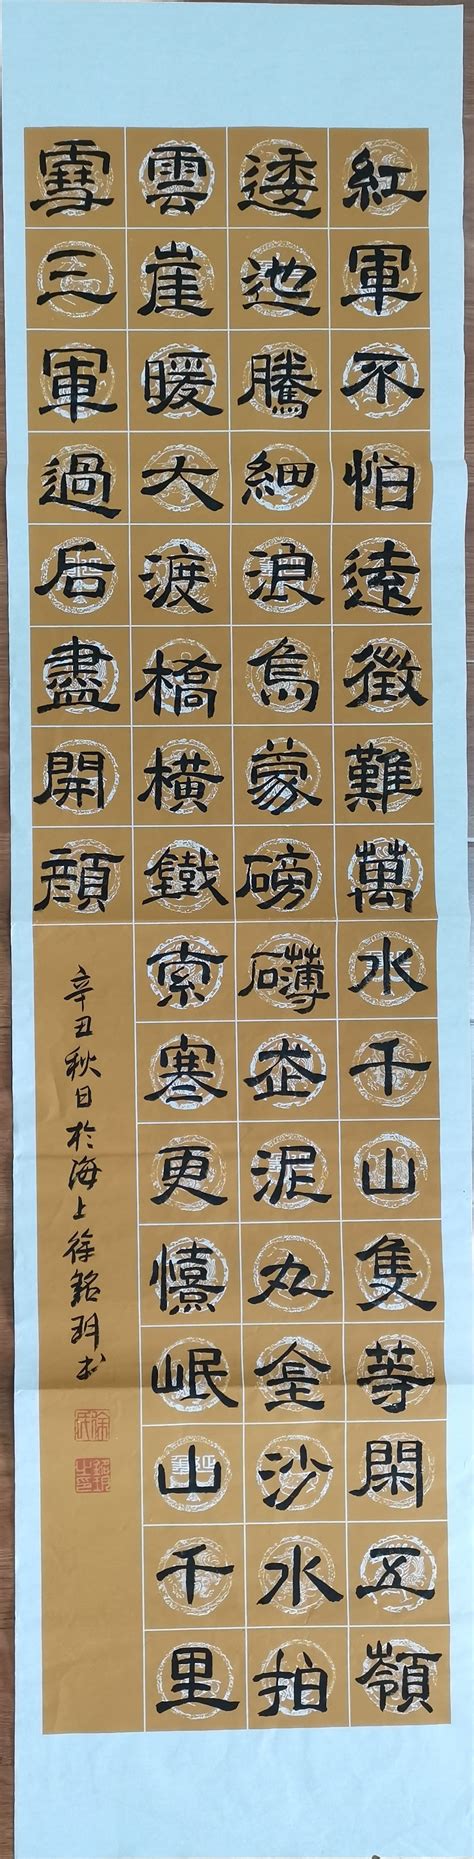 紅軍不怕遠徵難萬水千山隻等閑五嶺
逶迤騰細浪烏蒙磅礴走泥丸金沙水拍
雲崖暖大渡橋橫鐵索寒更憘岷山千里
雪三軍過后盡開顔
辛丑秋日於海上徐銘玥书